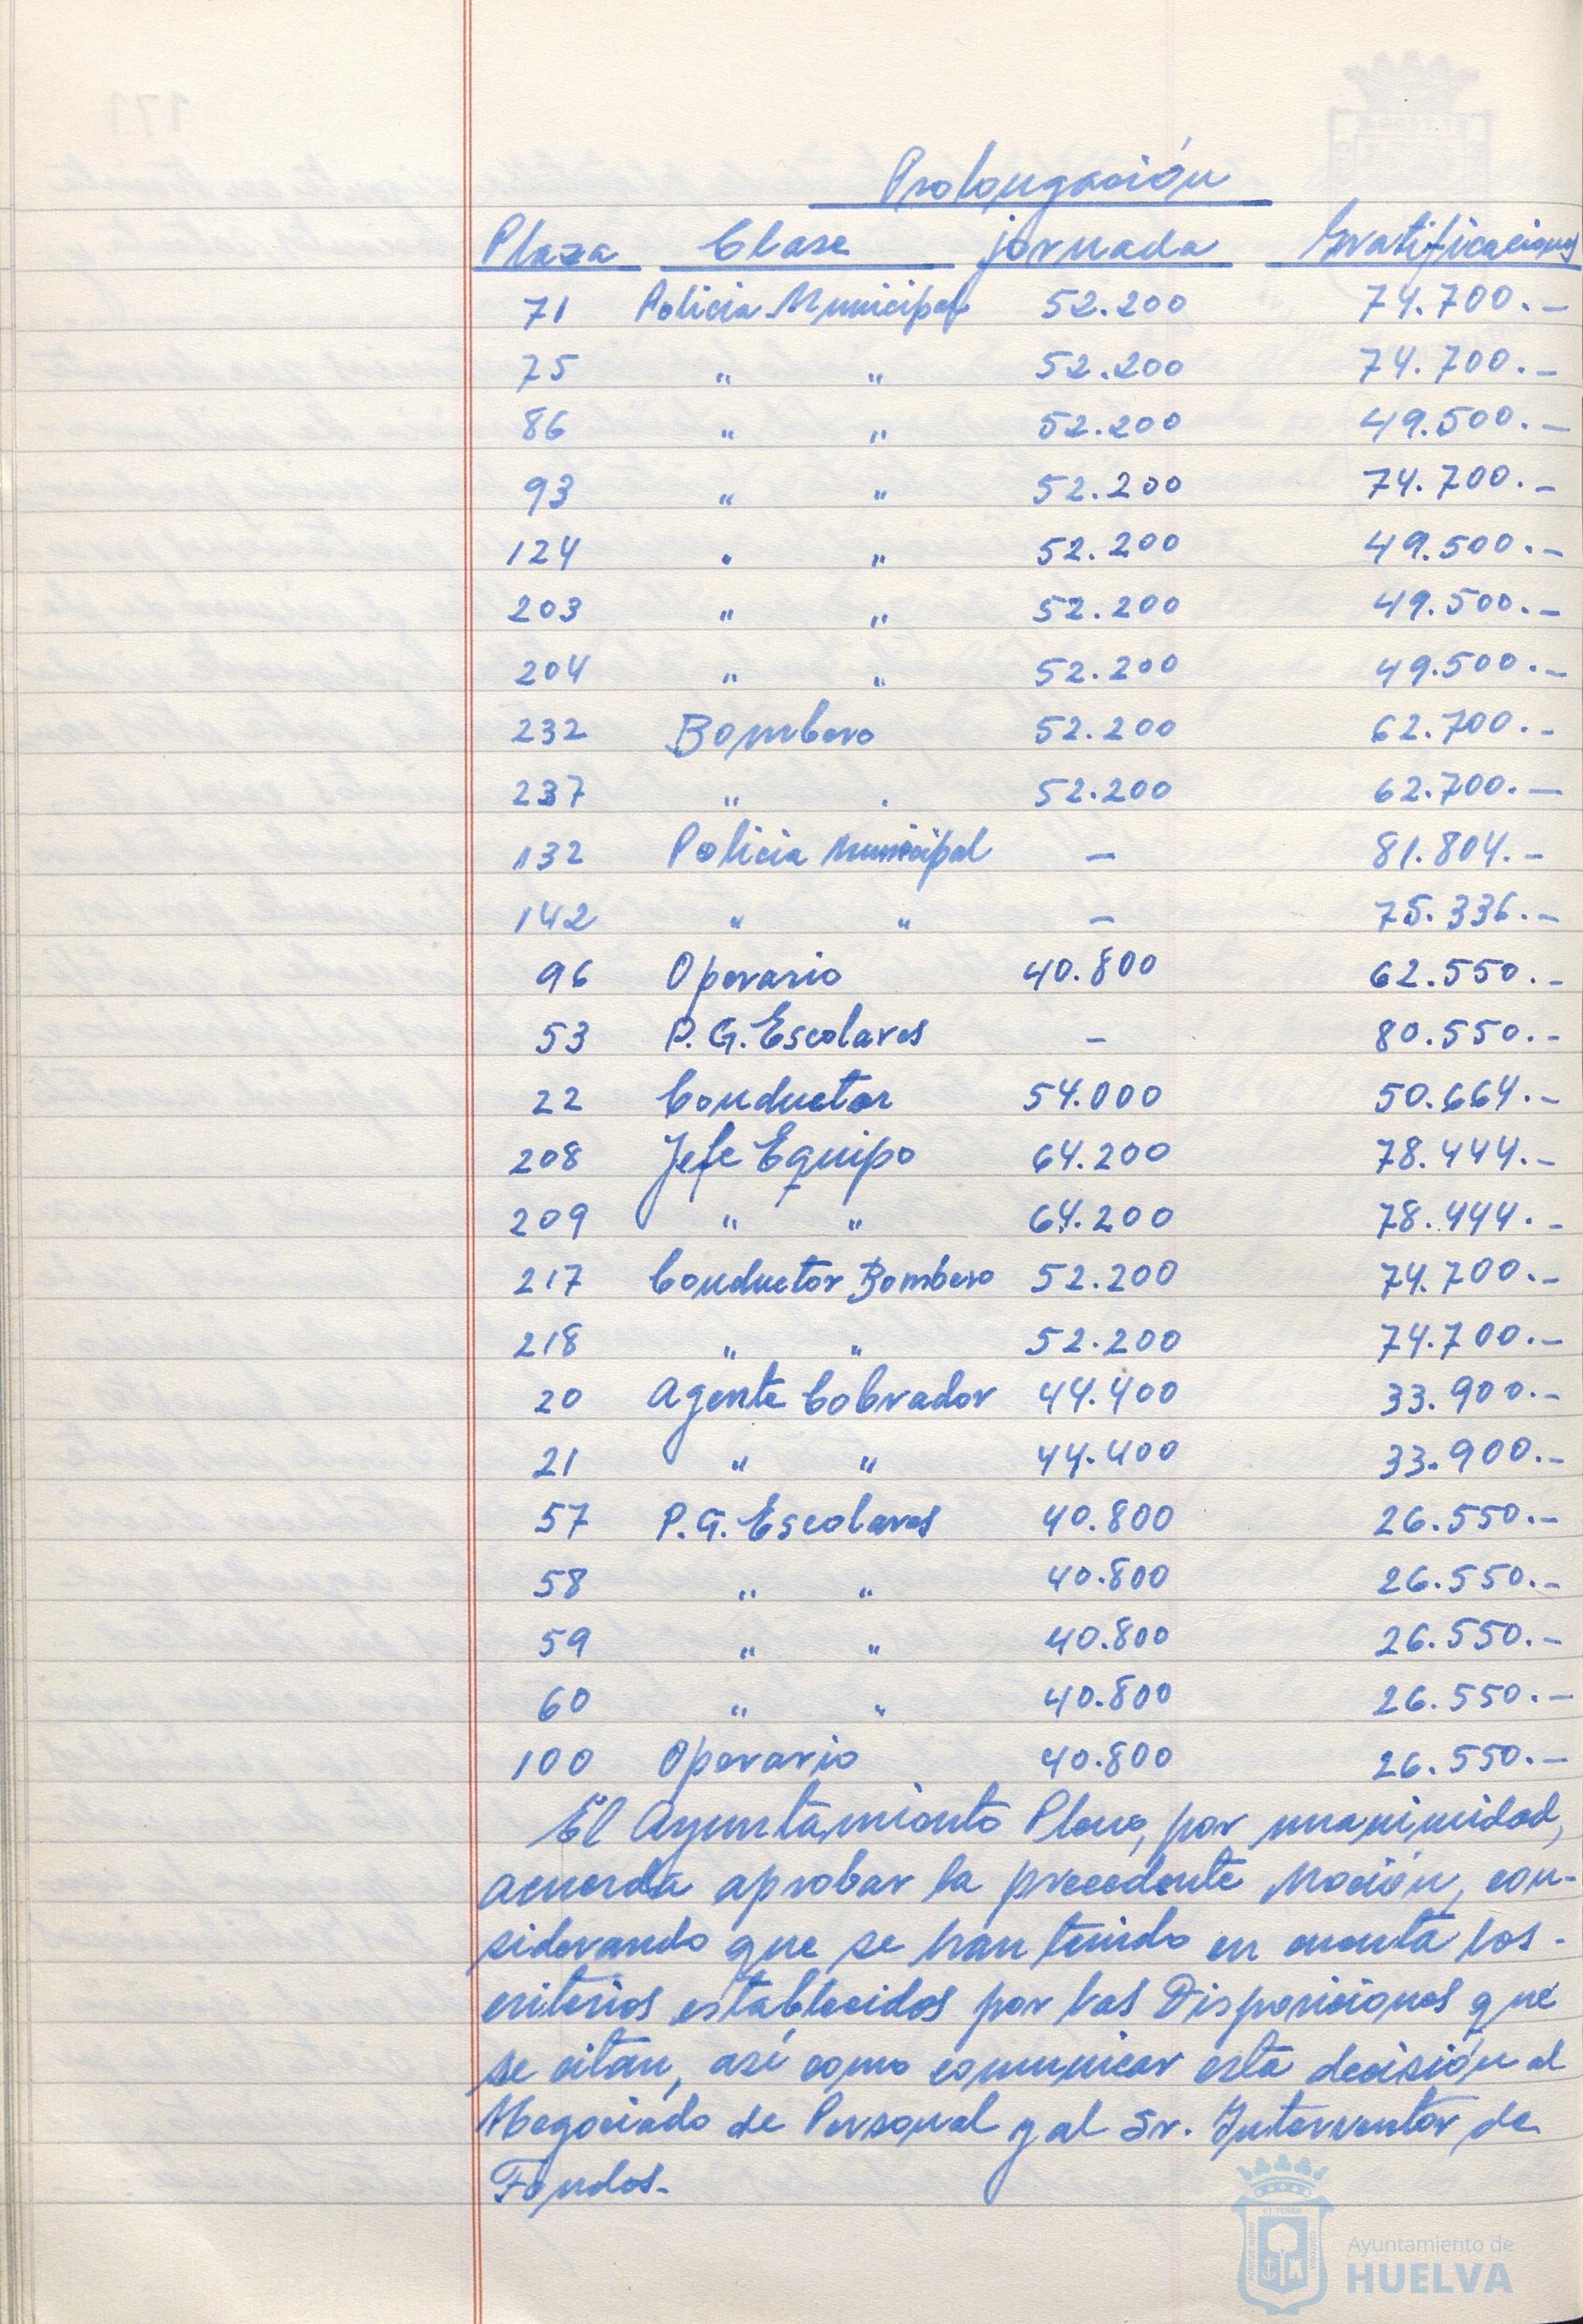 Prolongación
Plaza Clase jornada Gratificaciones
71 Policia Municipal 52.200 74.700.-
75 " " 52.200 74.700.-
86 " " 52.200 49.500.-
93 " " 52.200 74.700.-
124 " " 52.200 49.500.-
203 " " 52.200 49.500.-
204 " " 52.200 49.500.-
232 Bombero 52.200 62.700.-
237 " . 52.200 62.700.-
132 Policia Municipal - 81.804.-
142 " " - 75.336.-
96 Operario 40.800 62.550.-
53 P. G. Escolares - 80.550.-
22 Conductor 54.000 50.664.-
208 Jefe Equipo 64.200 78.444.-
209 " " 64.200 78.444.-
217 Conductor Bombero 52.200 74.700.-
218 " " 52.200 74.700.-
20 Agente Cobrador 44.400 33.900.-
21 " " 44.400 33.900.-
57 P. G. Escolares 40.800 26.550.-
58 " " 40.800 26.550.-
59 " " 40.800 26.550.-
60 " " 40.800 26.550.-
100 Operario 40.800 26.550.-
El Ayuntamiento Pleno, por unanimidad,
acuerda aprobar la precedente Moción, con-
siderando que se han tenido en cuenta los-
criterios establecidos por las Disposiciones que
se citan, así como comunicar esta decisión al
Negociado de Personal y al Sr. Interventor de
Fondos.-
Ayuntamiento de
HUELVA